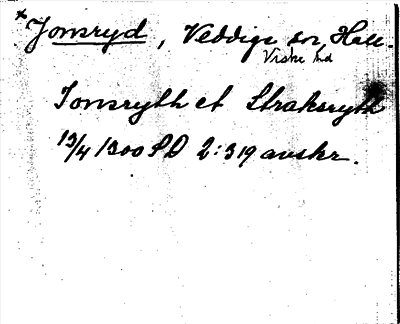 * Jonsryd, Veddige sn, Hall.
Viske hd
Jonsryth et Straksryth
13/4 1300 SD 2:319 avskr.